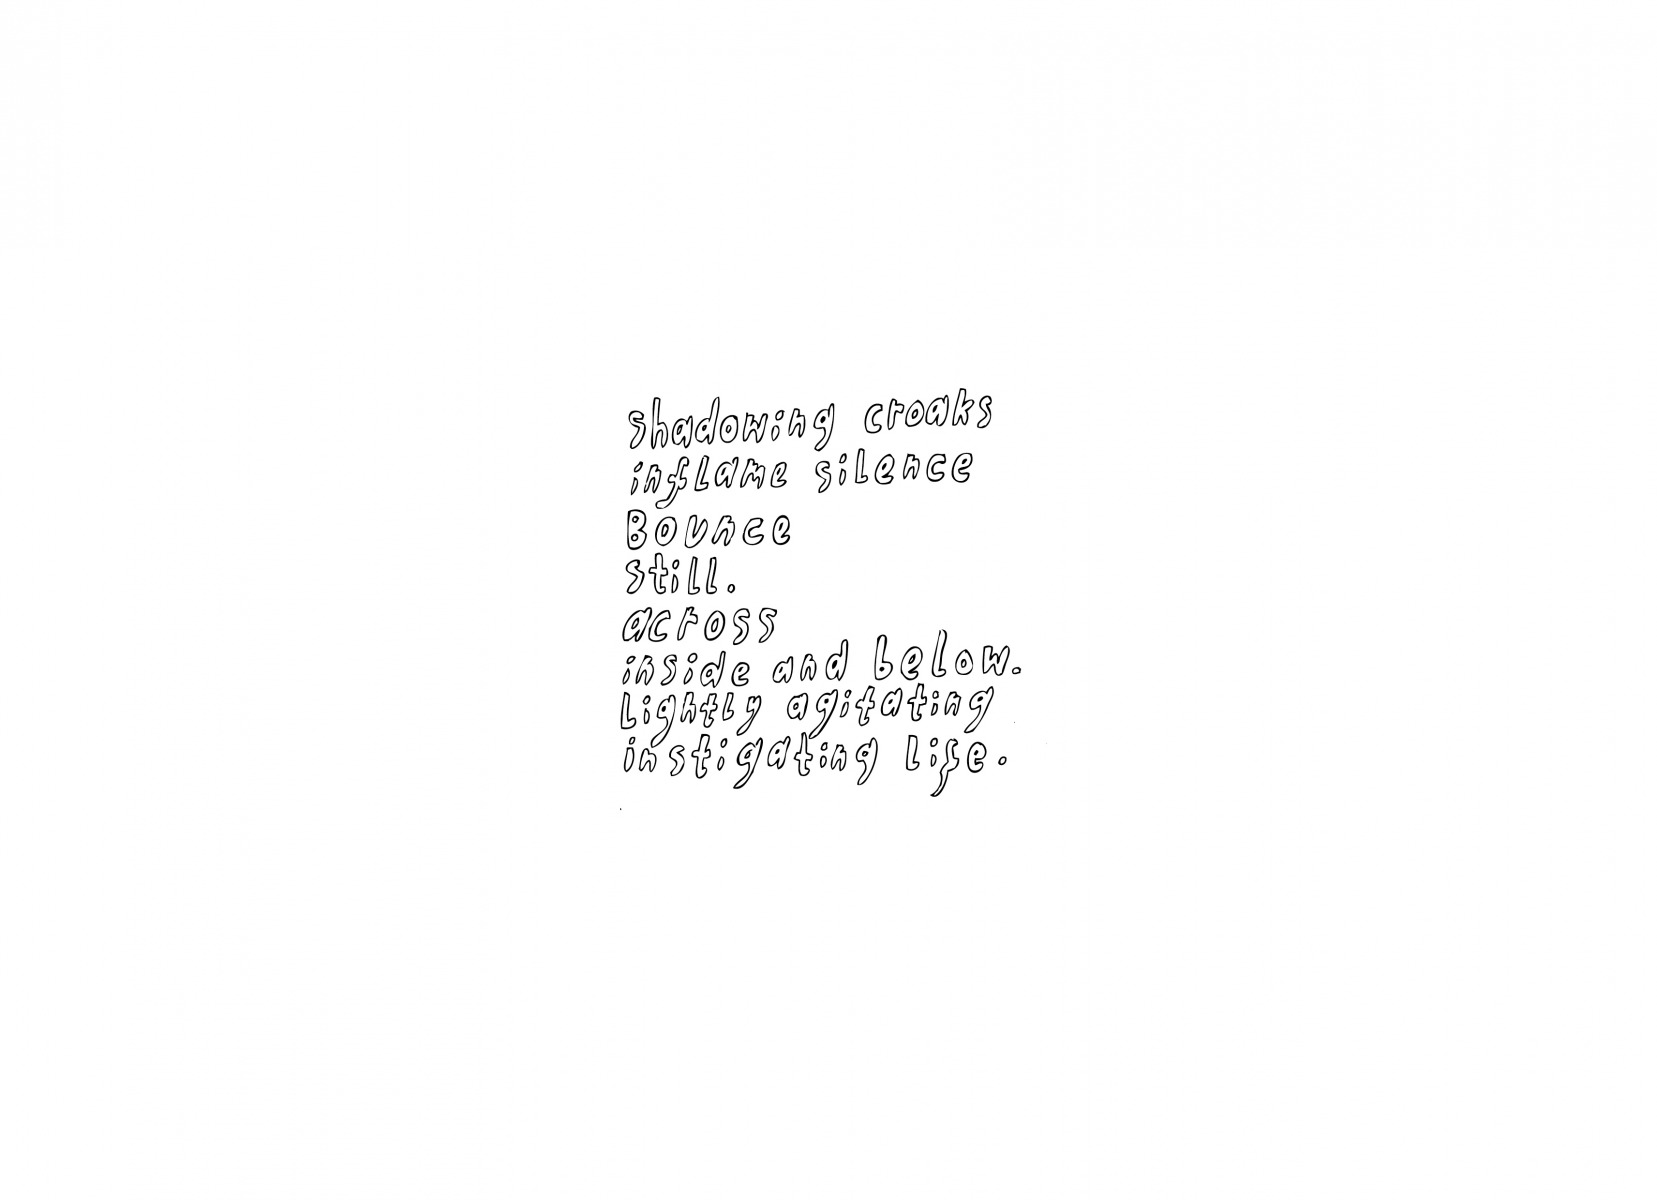 shadowing croaks
inflame silence
Bounce
still.
across
inside and below.
Lightly agitating
instigating life.